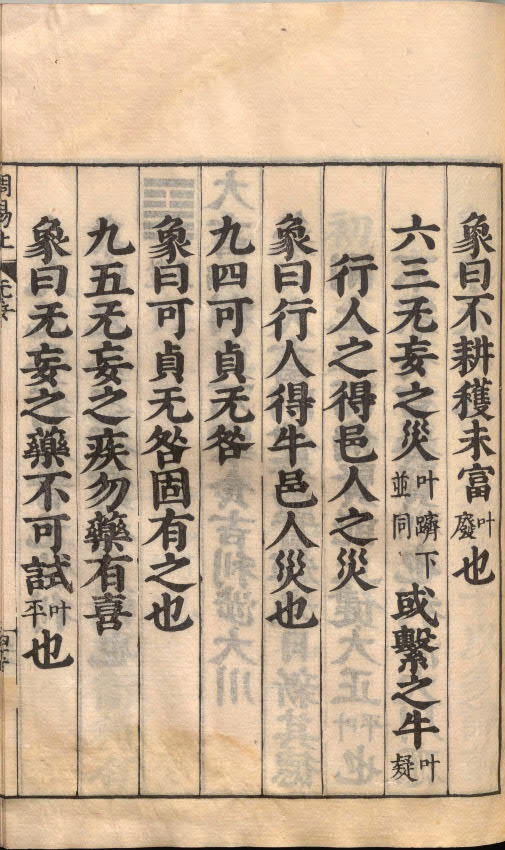 象曰不耕穫未富叶廢也
六三无妄之災叶躋下並同或繫之牛叶疑
行人之得邑人之災
象曰行人得牛邑人災也
九四可貞无咎
象曰可貞无咎固有之也
九五无妄之疾勿藥有喜
象曰无妄之藥不可試叶平也
周易上